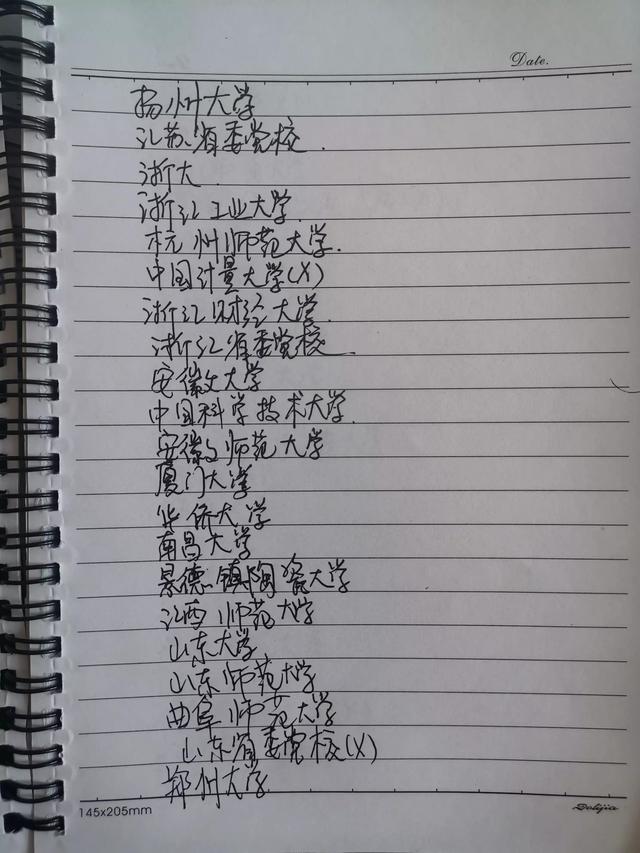 Date.
扬州大学
江苏省委党校.
浙大.
浙江工业大学.
杭州师范大学.
中国计量大学(X)
浙江财经大学.
浙江省委党校.
安徽大学
中国科学技术大学.
安徽师范大学
厦门大学
华侨大学
南昌大学
景德镇陶瓷大学
江西师范大学
山东大学
山东师范大学
曲阜师范大学
山东省委党校(X)
郑州大学
145x205mm
Dolijia